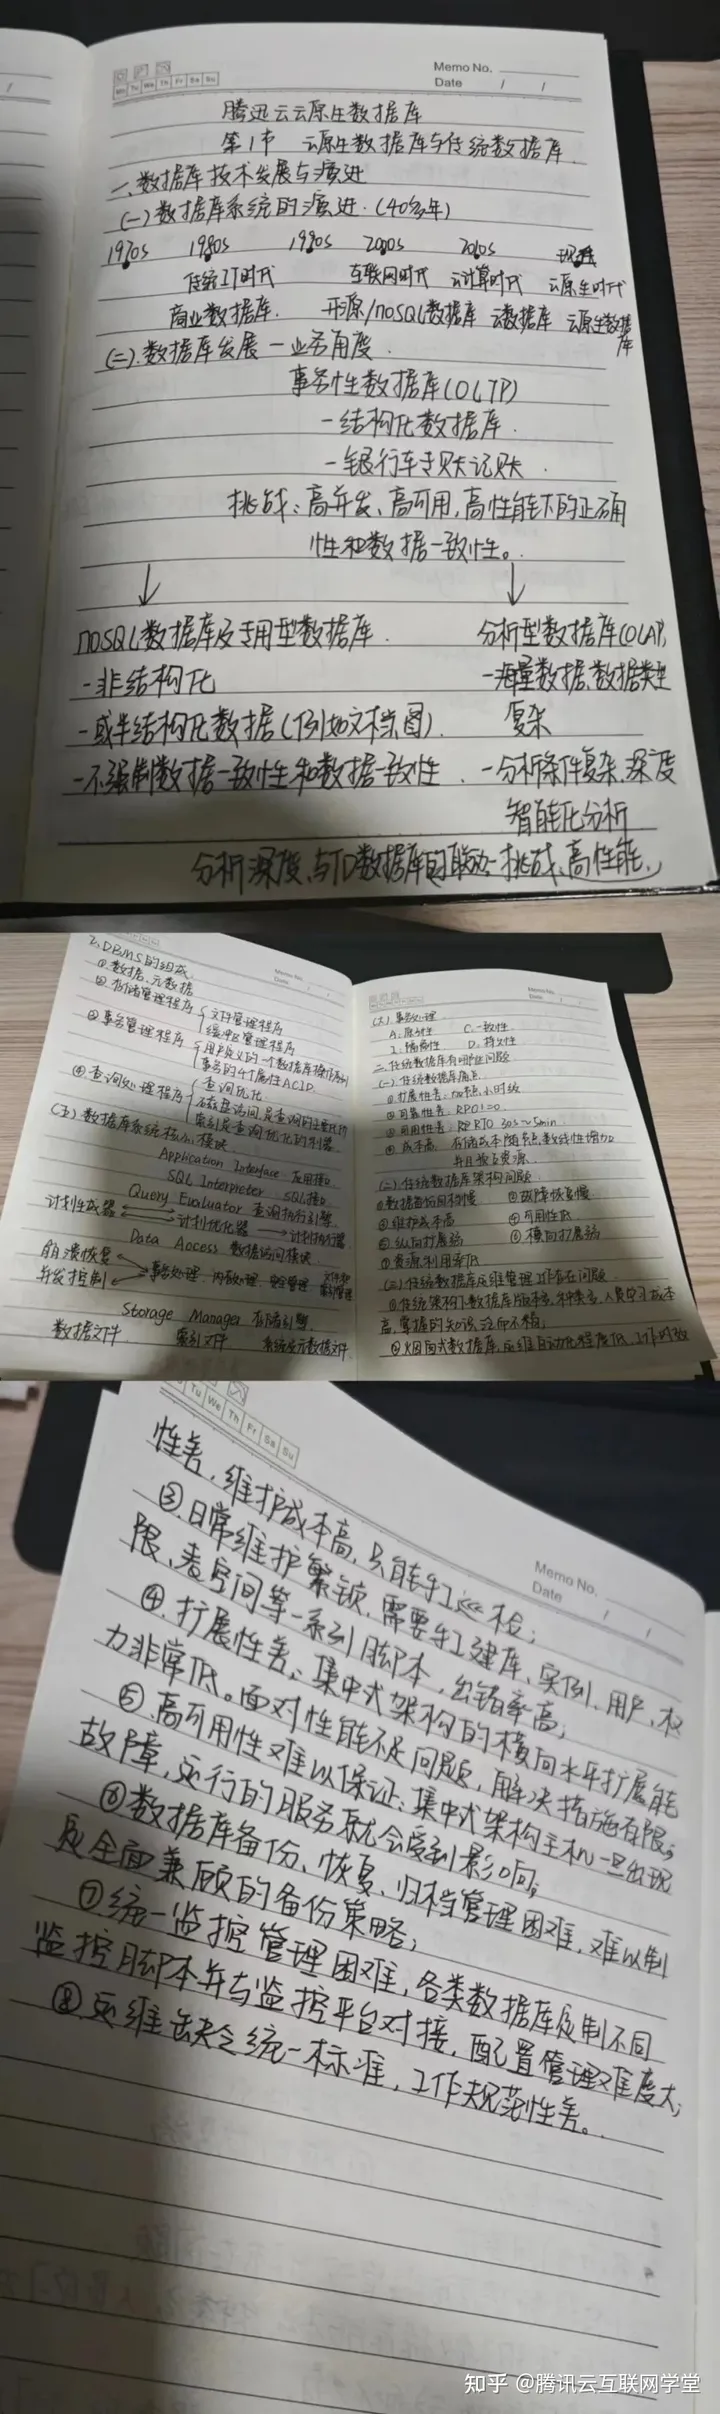 Memo No.
Date / /
Mo Tu We Th Fr Sa Su
腾迅云云原生数据库
第1节 云原生数据库与传统数据库.
一、数据库技术发展与演进
(一)数据库系统的演进.(40多年)
1970s 1980s 1990s 2000s 2010s 现在
传统IT时代 互联网时代 云计算时代 云原生时代
商业数据库. 开源/noSQL数据库 云数据库 云原生数据库
(二).数据库发展 — 业务角度.
事务性数据库(OLTP)
-结构化数据库.
-银行车专账记账.
挑战:高并发、高可用,高性能下的正确
性和数据一致性。
noSQL数据库及专用型数据库. 分析型数据库(OLAP)
-非结构化 -海量数据、数据类型
-或半结构化数据(例如文档、图). 复杂
-不强制数据一致性和数据一致性. -分析条件复杂、深度
智能化分析
分析深度、与TD数据库的联动-挑战、高性能.
Memo No.
Date / /
2、DBMS的组成.
①数据、元数据
②存储管理程序 文件管理程序
缓冲区管理程序
③事务管理程序 用户定义的一个数据库操作序列
事务的4个属性ACID
④查询处理程序 查询优化
磁盘访问是查询的主要代价
索引是查询优化的利器
(五)数据库系统核心模块.
Application Interface 应用接口
SQL Interpreter SQL接口
Query Evaluator 查询执行引擎.
计划生成器 计划优化器 计划执行器
Data Access 数据访问模块.
崩溃恢复 事务处理、内存处理、安全管理、文件和索引管理
并发控制
Storage Manager 存储引擎.
数据文件. 索引文件. 系统或元数据文件.
Memo No.
Date / /
(六)事务处理
A:原子性 C:一致性
I:隔离性 D:持久性
二、传统数据库有哪些问题
(一).传统数据库痛点
①扩展性差:加节点,小时级
②可靠性差:RPO!=0
③可用性差:RTO 30s~5min
④成本高: 存储成本随节点数线性增加
(二)传统数据库架构问题.
①数据备份间构慢 ②故障恢复慢
③维护成本高 ④可用性低
⑤纵向扩展弱 ⑥横向扩展弱
⑦资源利用率低
(三)传统数据库运维管理工作存在问题.
①传统架构下数据库版本多,种类多,人员学习成本
高,掌握的知识泛而不精;
②烟囱式数据库,运维自动化程度低,工作时效
Tu We Th Fr Sa Su
Memo No.
Date / /
性差,维护成本高,只能手工巡检;
③.日常维护繁锁,需要手工建库、实例、用户、权
限、表空间等一系列脚本,出错率高;
④.扩展性差:集中式架构的横向水平扩展能
力非常低。面对性能不足问题,解决措施有限;
⑤.高可用性难以保证:集中式架构主机一旦出现
故障,运行的服务就会受到影响;
⑥数据库备份、恢复、归档管理困难,难以制
定全面兼顾的备份策略;
⑦统一监控管理困难,各类数据库定制不同
监控脚本并与监控平台对接,配置管理难度大;
⑧.运维缺乏统一标准,工作规范性差。
知乎 @腾讯云互联网学堂